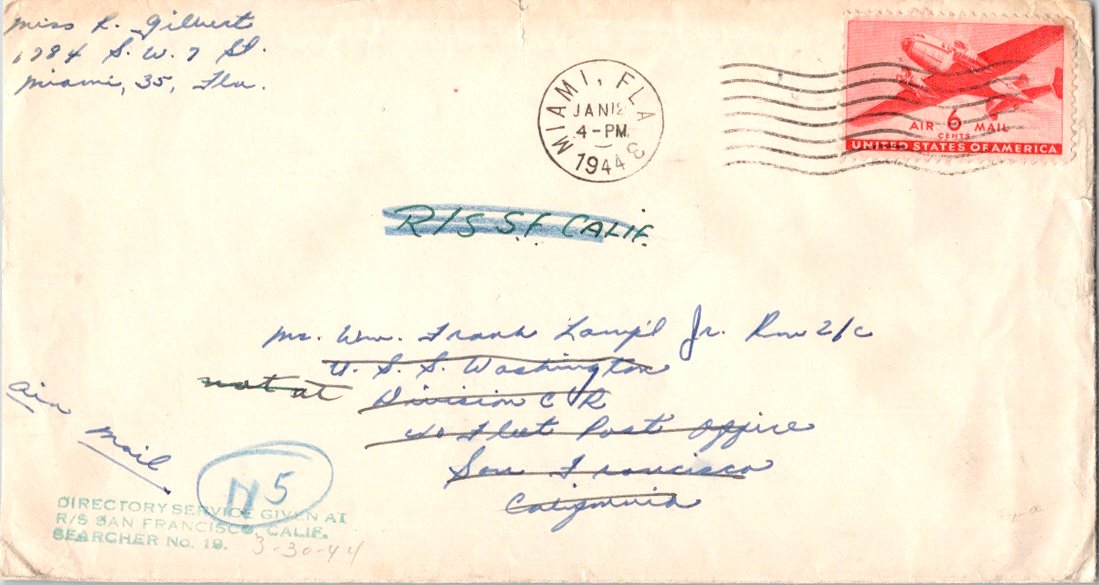 Miss R. Gilbert
1784 S. W. 7 St.
Miami, 35, Fla.
MIAMI, FLA 3
JAN 12
4-PM
1944
AIR 6 MAIL
CENTS
UNITED STATES OF AMERICA
R/S S.F CALIF.
Mr. Wm. Frank Lampl Jr. Rm 2/c
U. S. S. Washington
not at Division C R
c/o Fleet Post Office
San Francisco
California
Air Mail
N 5
DIRECTORY SERVICE GIVEN AT
R/S SAN FRANCISCO, CALIF.
SEARCHER No. 19.
3-30-44